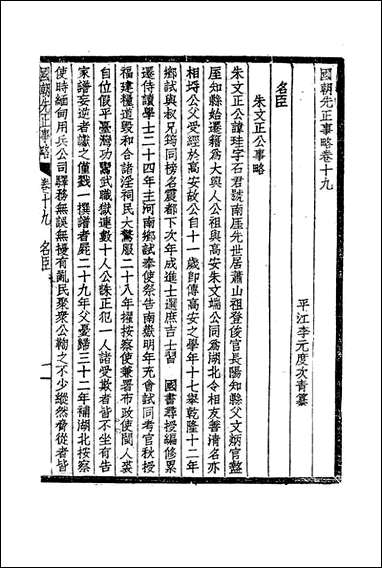 國朝先正事略卷十九
平江李元度次青纂
名臣
朱文正公事略
朱文正公諱珪字石君號南厓先世居蕭山祖登俊官長陽知縣父文炳官盩
厔知縣始遷籍爲大興人公祖與高安朱文端公同爲湖北令相友善清名亦
相埒公父受經於高安故公自十一歲即傳高安之學年十七舉乾隆十二年
鄉試與叔兄筠同榜名震都下次年成進士選庶吉士習 國書尋授編修累
遷侍讀學士二十四年主河南鄉試奉使祭告南嶽明年充會試同考官秋授
福建糧道毀和合諸淫祠民大驚服二十八年擢按察使兼署布政使閩人裘
自位假平臺灣功觺武職獄連數十人公誅正犯一人諸受欺者皆不坐有告
家譜妄逆者讞之僅戮一撰譜者屍二十九年父憂歸三十二年補湖北按察
使時緬甸用兵公司驛務無誤無擾有亂民聚衆公鞫之不少縱然脅從者皆
國朝先正事略
卷十九 名臣
一